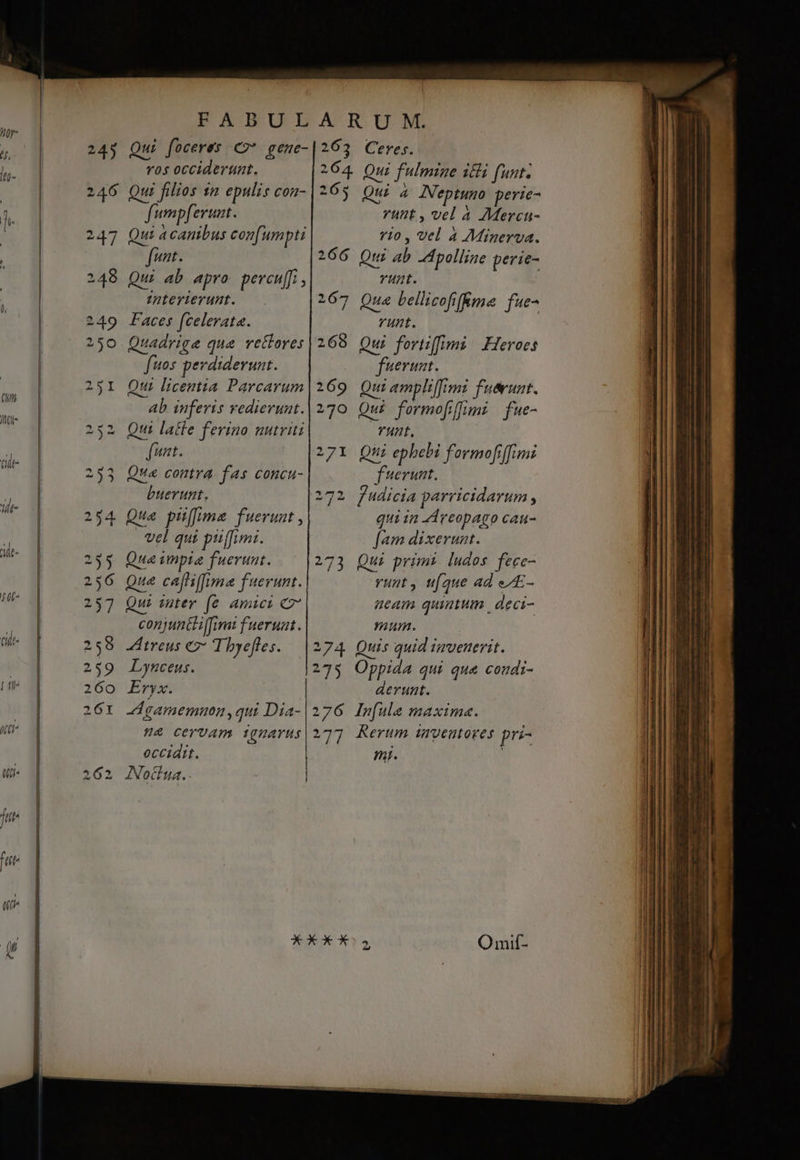 FABULARUM.
245 Qui ſoceros & gene-
ros occiderunt.
246 Qui filios in epulis con-
ſumpſerunt.
247 Qui à canibus conſumpti
ſunt.
248 Qui ab apro percuſſi,
interierunt.
249 Faces ſcelerata.
250 Quadrigæ quæ rectores
ſuos perdiderunt.
251 Qui licentia Parcarum
ab inferis redierunt.
252 Qui lacte ferino nutriti
ſunt.
253 Quæ contra fas concu-
buerunt.
254 Quæ piiſſimæ fuerunt,
vel qui piiſſimi.
255 Quæ impiæ fuerunt.
256 Quæ caſtiſſimæ fuerunt.
257 Qui inter ſe amici &
conjunctiſſimi fuerunt.
258 Atreus & Thyeſtes.
259 Lynceus.
260 Eryx.
261 Agamemnon, qui Dia-
næ cervam ignarus
occidit.
262 Noctua.
263 Ceres.
264 Qui fulmine icti ſunt.
265 Qui à Neptuno perie-
runt, vel à Mercu-
rio, vel à Minerva.
266 Qui ab Apolline perie-
runt.
267 Quæ bellicoſiſſimæ fue-
runt.
268 Qui fortiſſimi Heroes
fuerunt.
269 Qui ampliſſimi fuerunt.
270 Qui formoſiſſimi fue-
runt.
271 Qui ephebi formoſiſſimi
fuerunt.
272 Judicia parricidarum,
qui in Areopago cau-
ſam dixerunt.
273 Qui primi ludos fece-
runt, uſque ad Æ-
neam quintum deci-
mum.
274 Quis quid invenerit.
275 Oppida qui quæ condi-
derunt.
276 Inſulæ maximæ.
277 Rerum inventores pri-
mi.
**** 2 Omiſ-